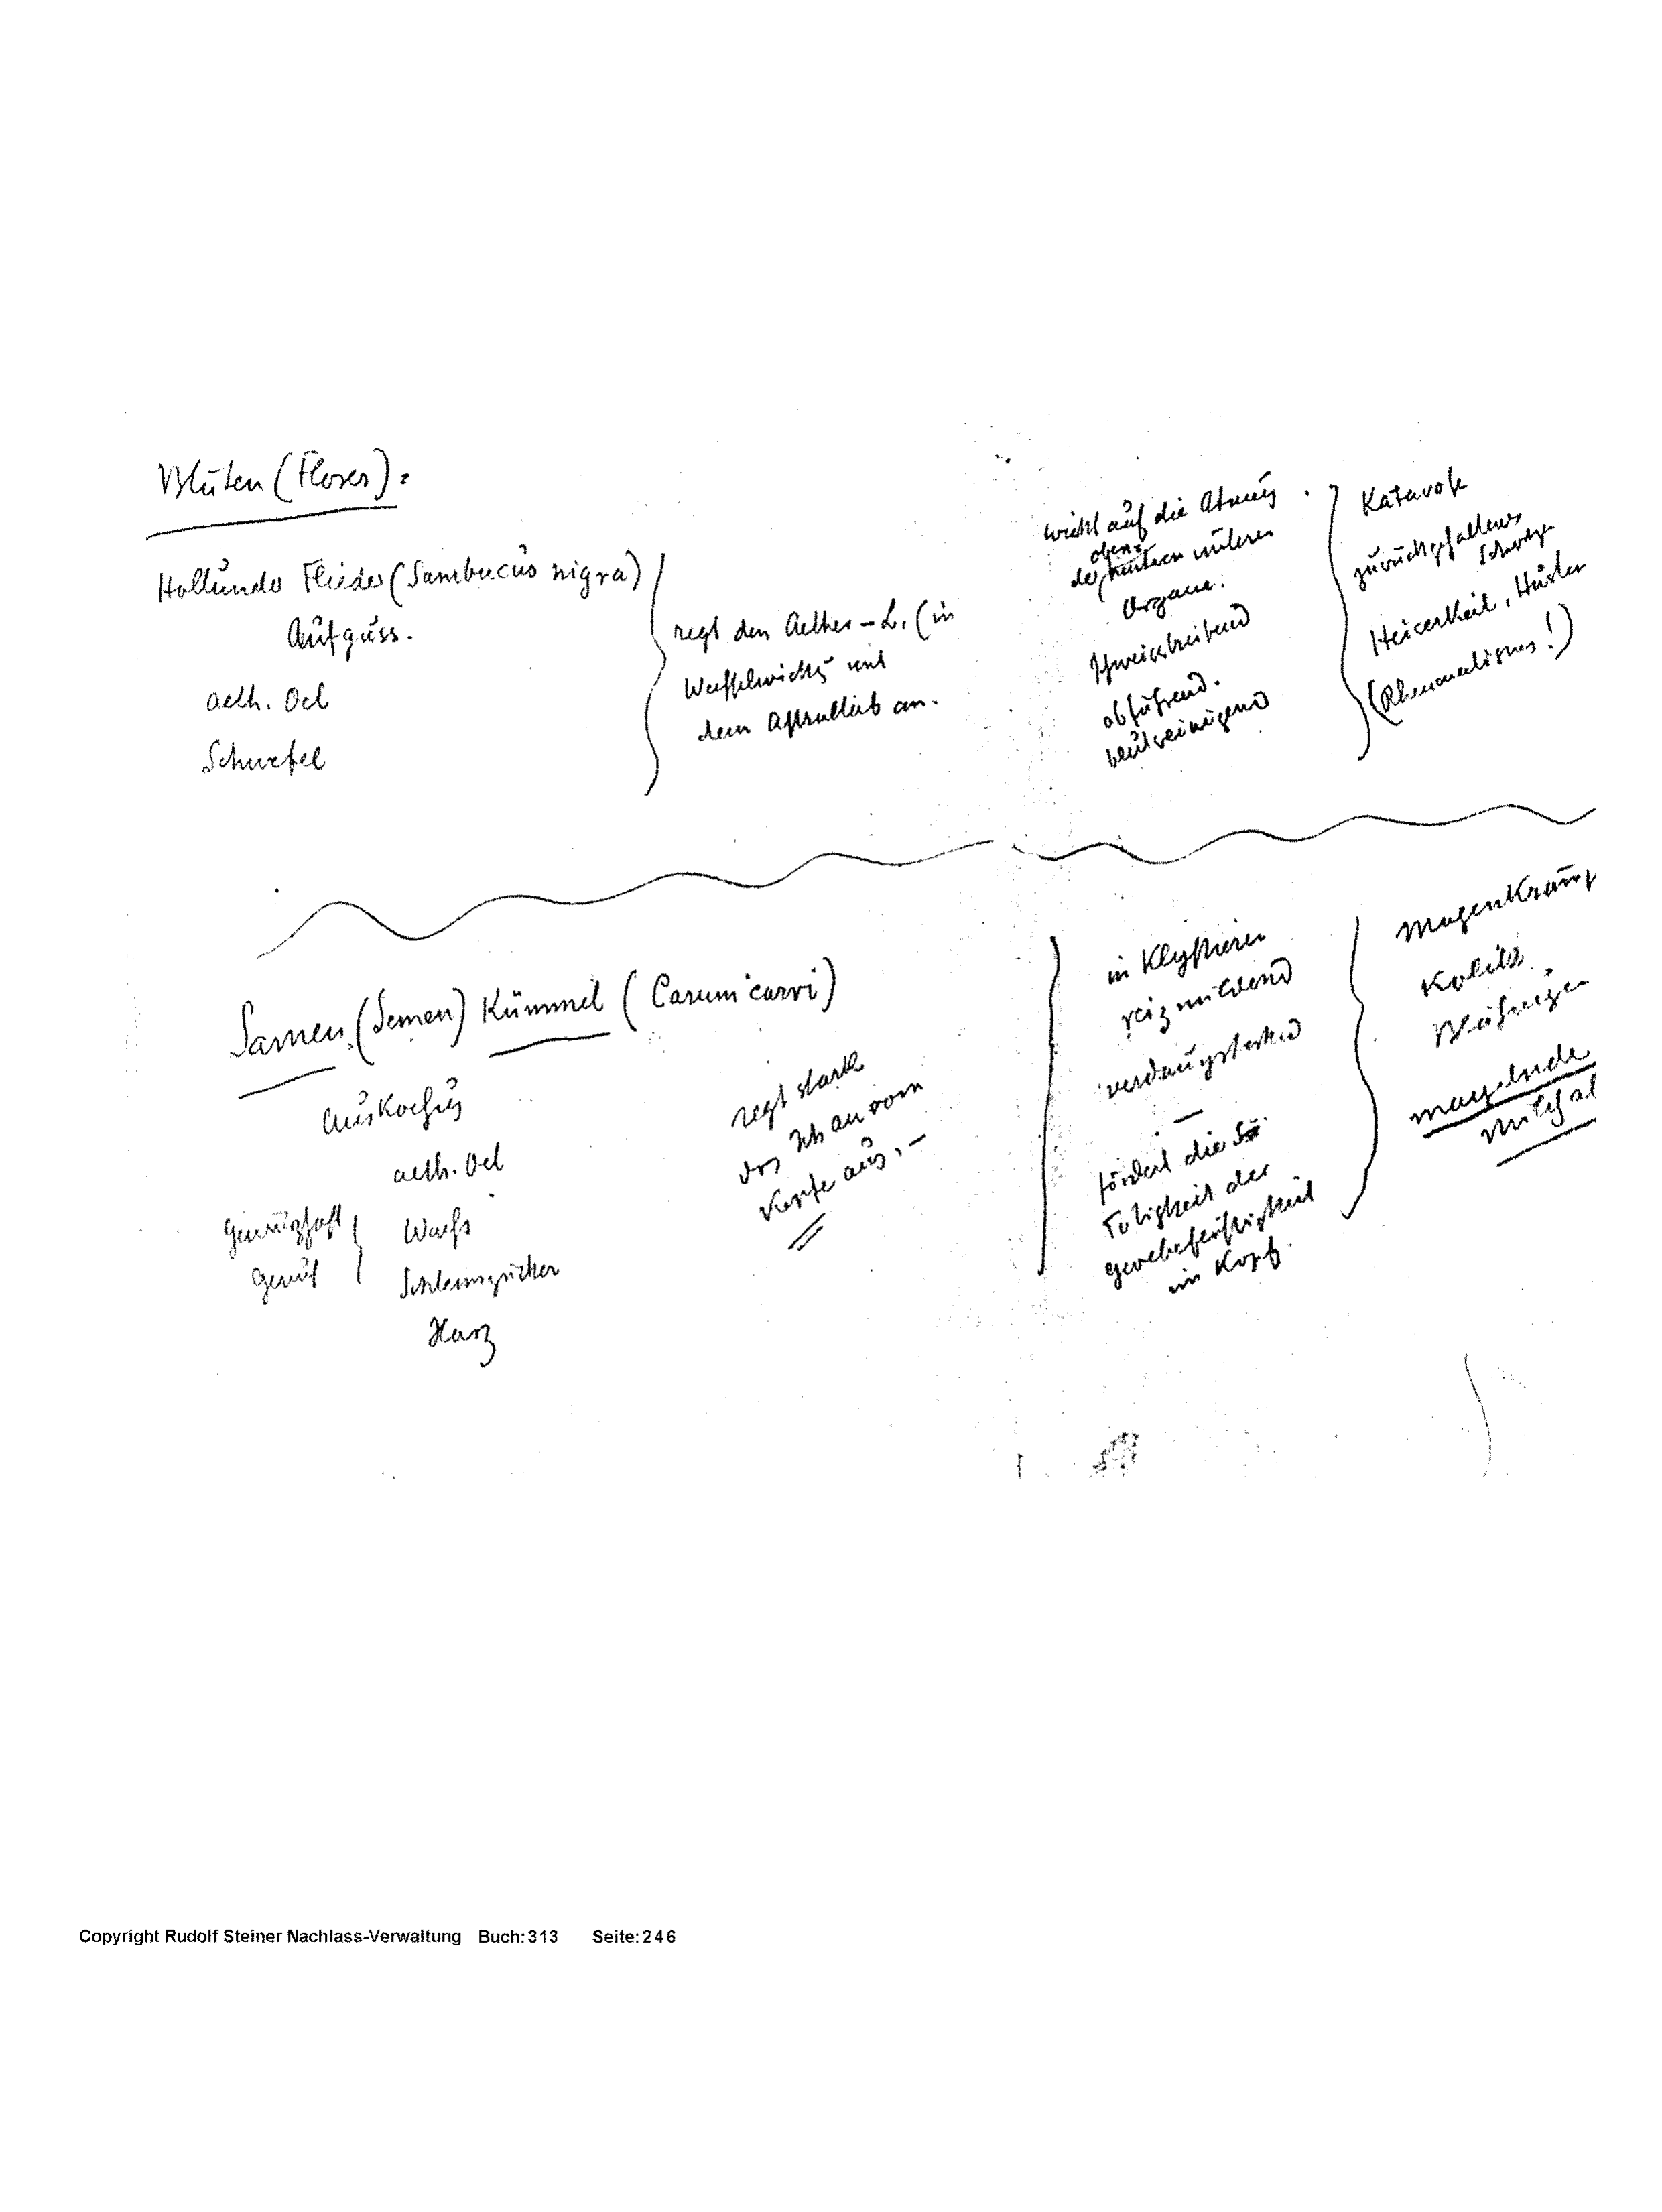 Blüten (Flores):
Hollunder Flieder (Sambucus nigra)
Aufguss.
aeth. Oel
Schwefel
regt den Aether-L. (in
Wechselwirkg mit
dem Astralleib an.
wirkt auf die Atmung
oben
der unteren
Organe.
schweisstreibend
abführend.
blutreinigend
Katarrh
zurückgehaltener
Heiserkeit, Husten
(Rheumatismus!)
Samen (Semen) Kümmel (Carum carvi)
Auskochung
aeth. Oel
Wachs
Schleimzucker
Harz
regt stark
das Ich an vom
Kopfe aus.-
in Klystieren
reizmildernd
verdaugstärkend
–
fördert die
Tätigkeit der
im Kopf.
Magenkrämpf
Kolik
Blähungen
Copyright Rudolf Steiner Nachlass-Verwaltung Buch:313 Seite:246